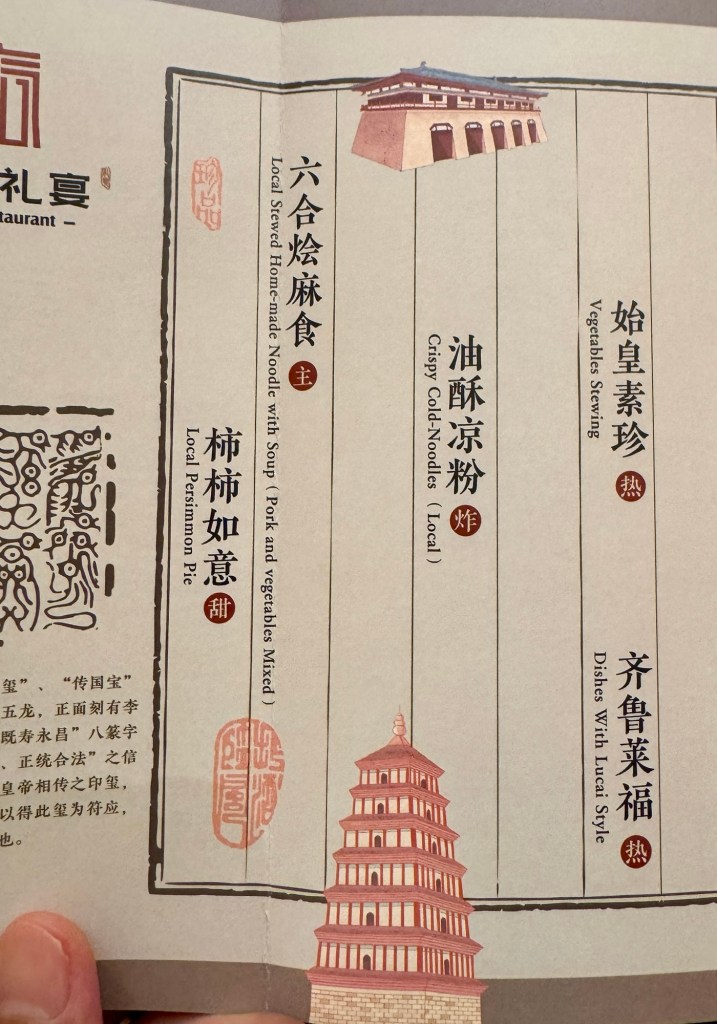 始皇素珍 热
Vegetables Stewing
齐鲁莱福 热
Dishes With Lucai Style
油酥凉粉 炸
Crispy Cold-Noodles (Local)
六合烩麻食 主
Local Stewed Home-made Noodle with Soup (Pork and vegetables Mixed)
珍品
柿柿如意 甜
Local Persimmon Pie
礼宴
taurant –
玺”、“传国宝”
五龙，正面刻有李
既寿永昌”八篆字
、正统合法”之信
皇帝相传之印玺，
以得此玺为符应，
也。